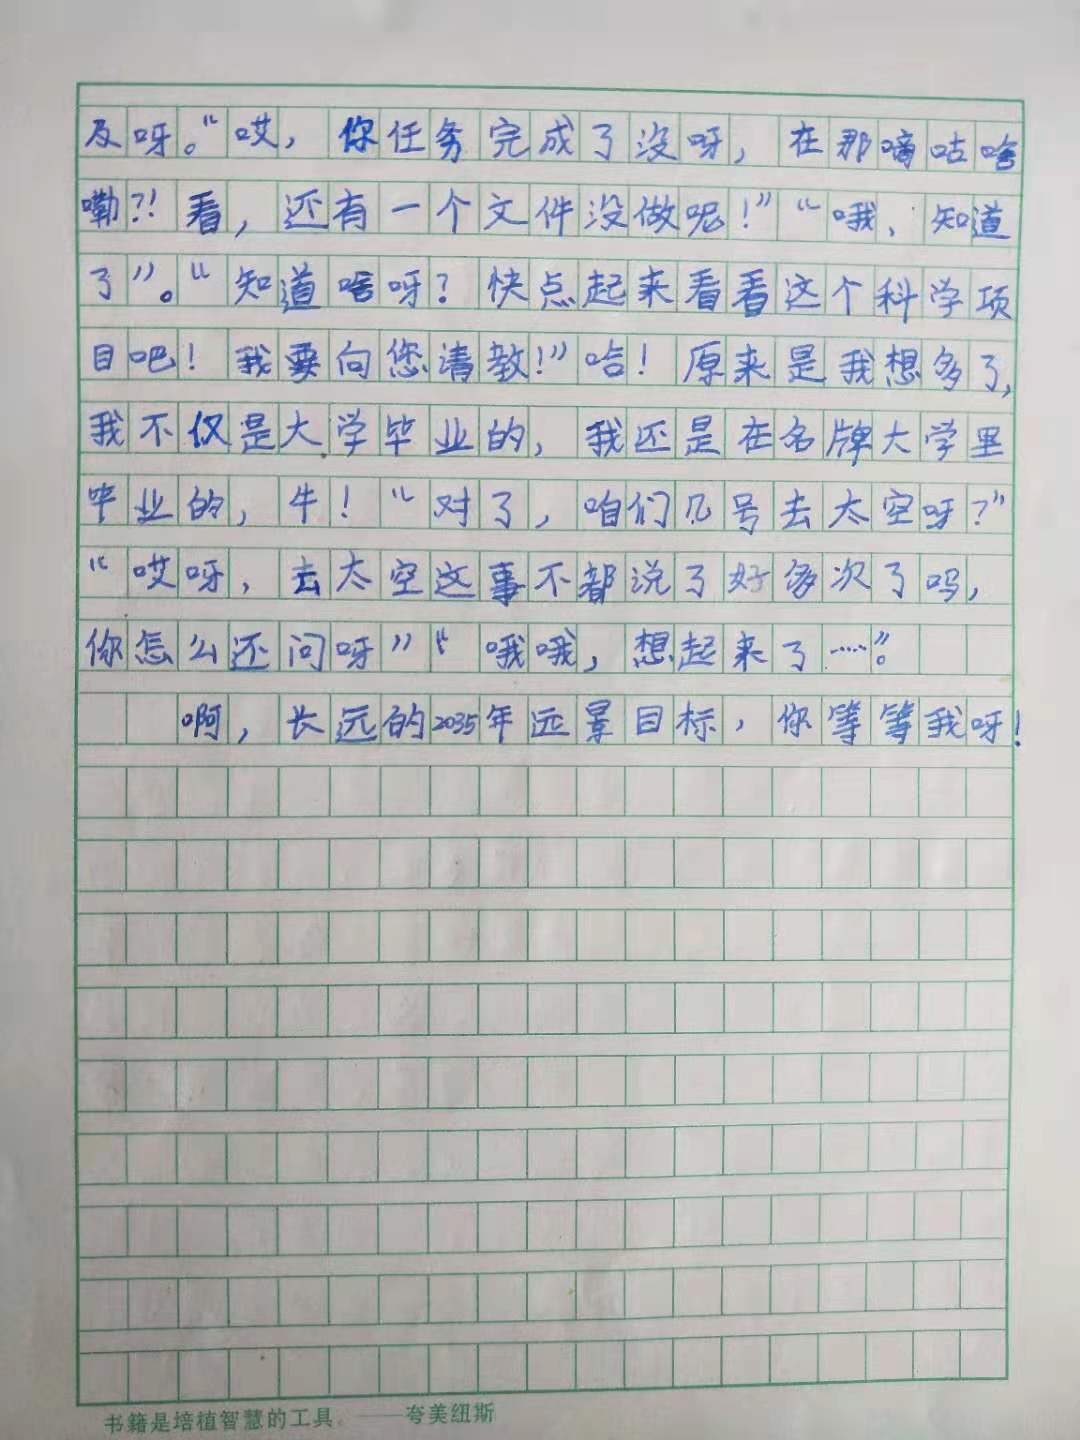 及呀。“哎，你任务完成了没呀，在那嘀咕啥
嘞？！看，还有一个文件没做呢！”“哦，知道
了”。“知道啥呀？快点起来看看这个科学项
目吧！我要向您请教！”哈！原来是我想多了，
我不仅是大学毕业的，我还是在名牌大学里
毕业的，牛！“对了，咱们几号去太空呀？”
“哎呀，去太空这事不都说了好多次了吗，
你怎么还问呀”“哦哦，想起来了……”。
啊，长远的2035年远景目标，你等等我呀！
书籍是培植智慧的工具。——夸美纽斯